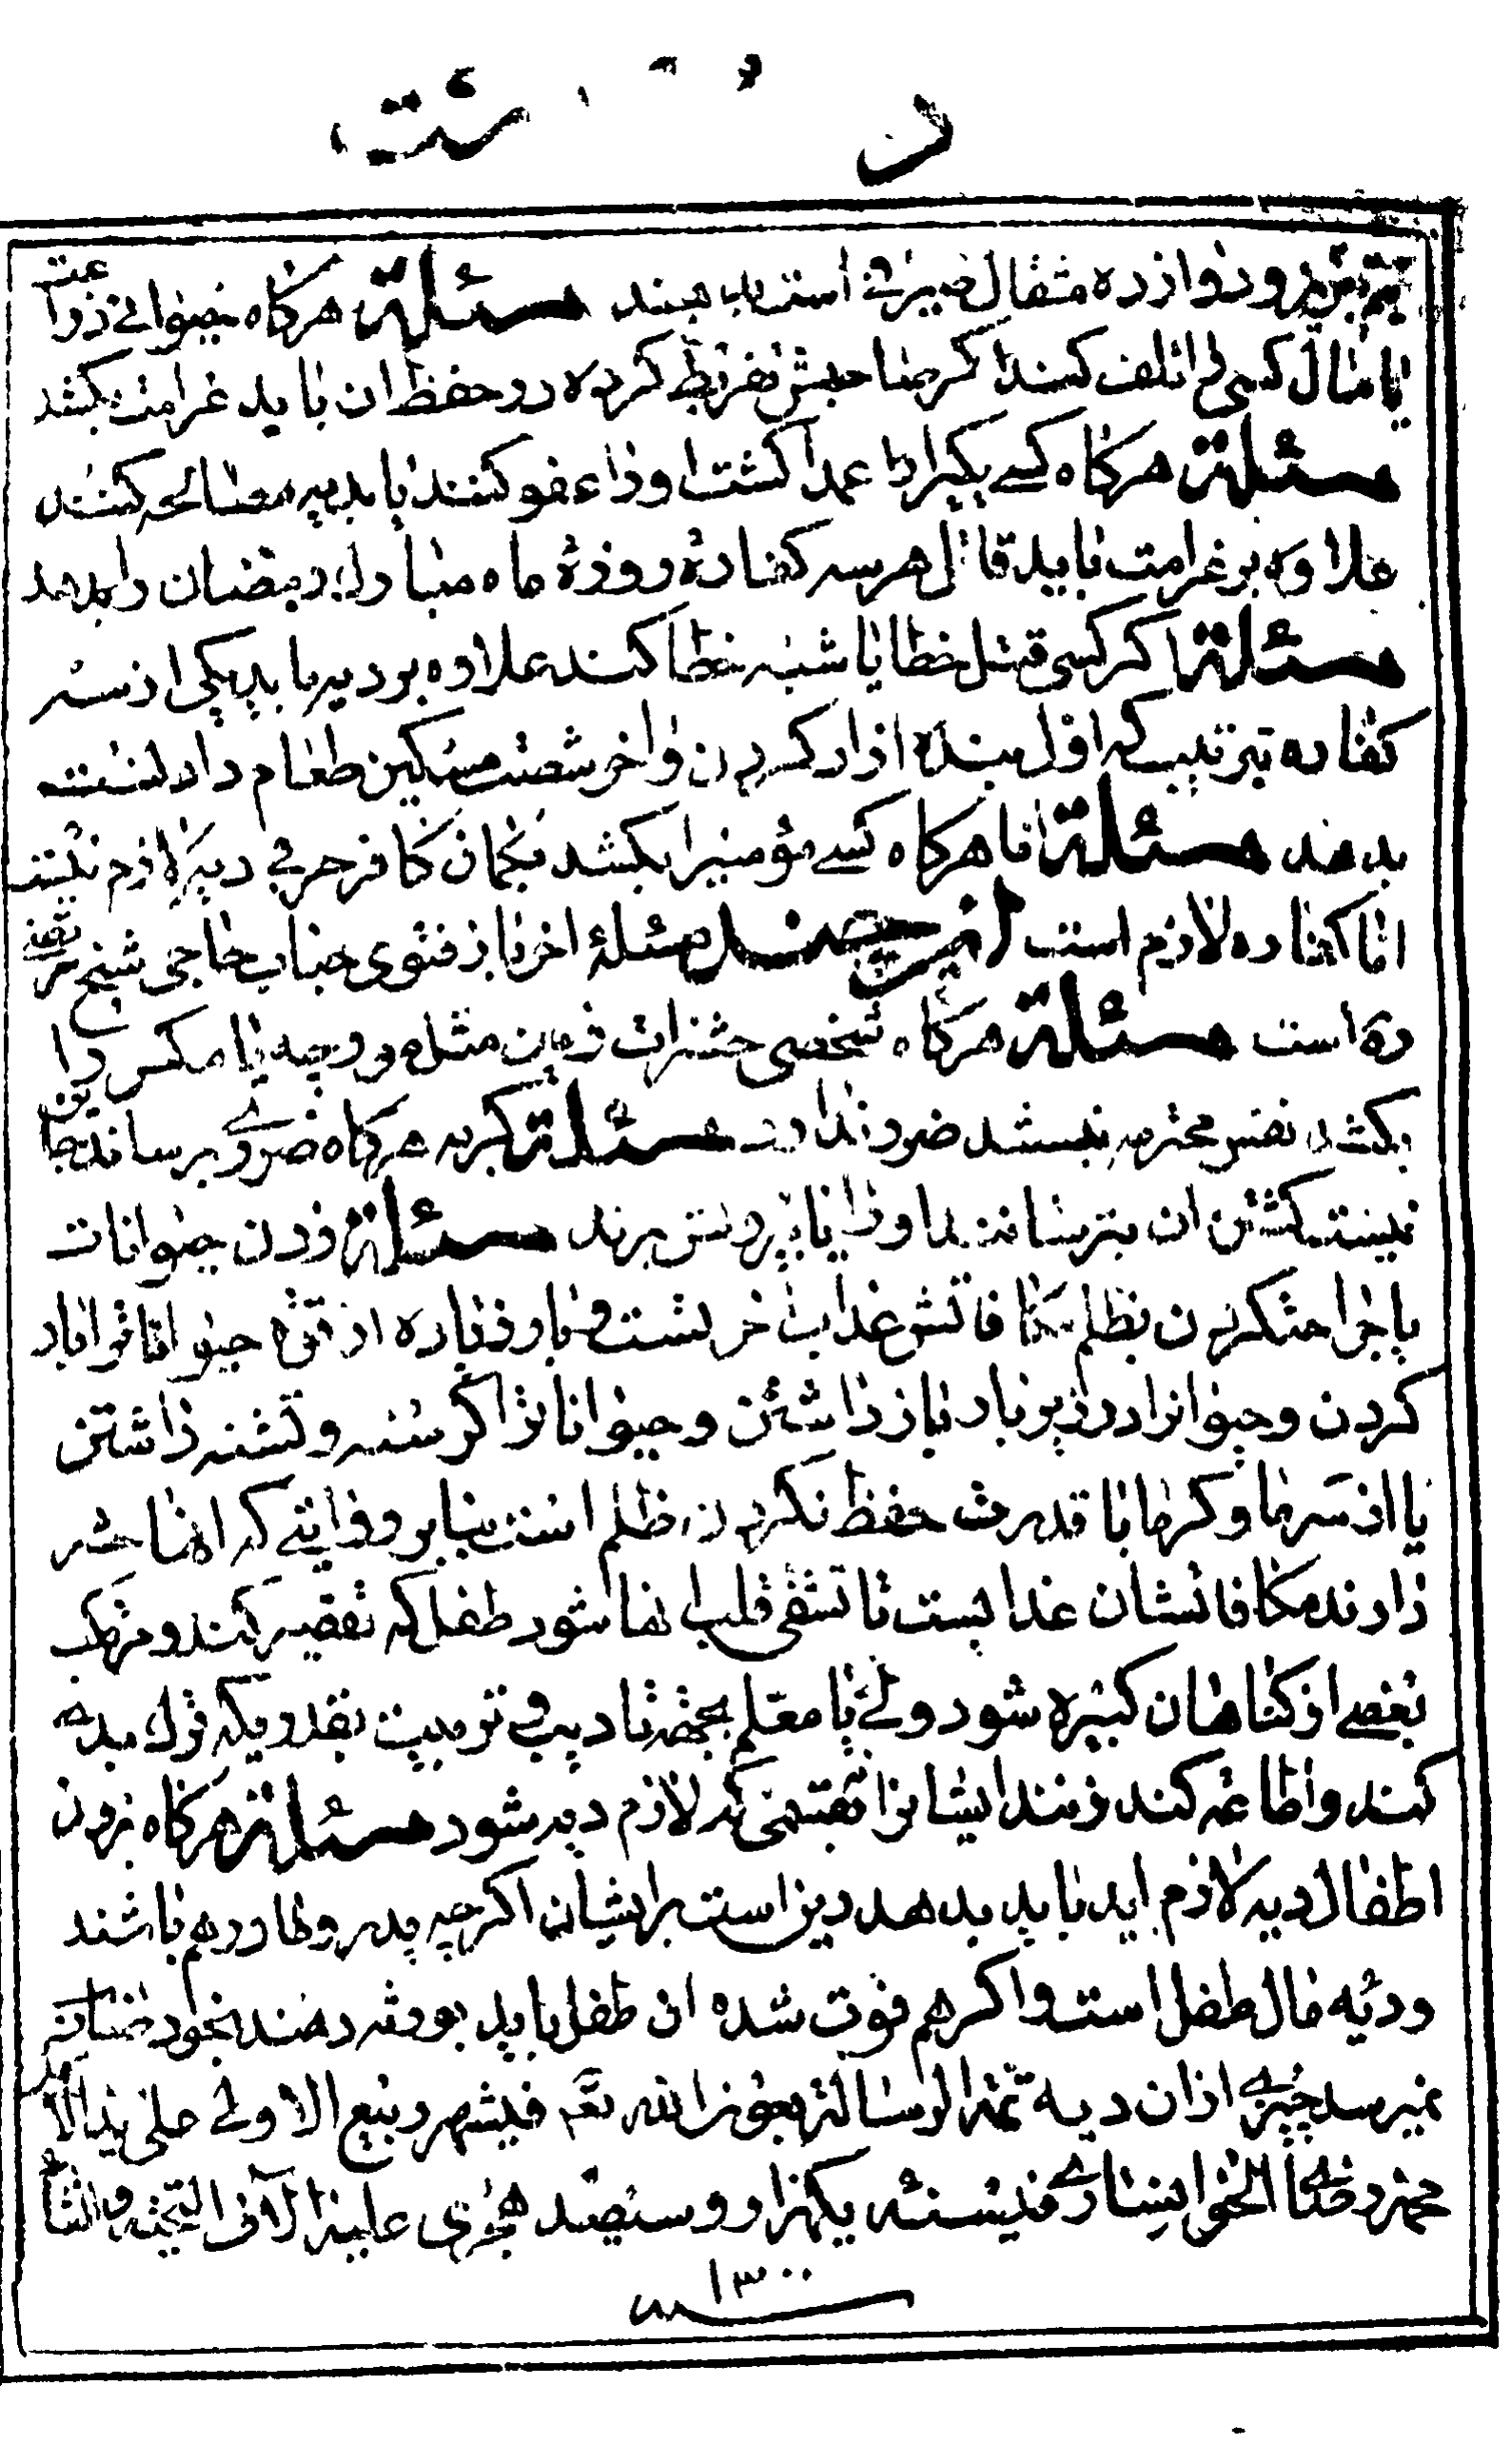 و دوازده مثقال صیرفی است بدهند مسئلة هرگاه حیوانی زراعت
یا مال کسی را تلف کند اگر صاحبش تفریط کرده در حفظ ان باید غرامت بکشد
مسئلة هرگاه کسی یکیرا عمدا کشت او را عفو کنند یا بدیه مصالحه کنند
علاوه بر غرامت باید قاتل هر سه کفارهٔ روزهٔ ماه مبارک رمضان را بدهد
مسئلة اگر کسی قتل خطا یا شبه خطا کند علاوه بر دیه باید یکی از سه
کفاره بترتیب که اول بنده ازاد کردن و اخر شصت مسکین طعام داد لست
بدهد مسئلة اما هرگاه کسے مؤمنیرا بکشد بگمان کافر حربی دیه لازم نیست
اما کفاره لازم است این چند مسئلهٔ اخر باز فتوی جناب حاجی شیخ
ره است مسئلة هرگاه شخصی حشرات زمین مثل مورچه یا مگس را
بکشد نفس محترمه نباشد ضرر ندارد مسئلة گربه هرگاه ضرری برساند جایز
نیست کشتن ان بترسانند او را یا بیرونش برند مسئلة زدن حیوانات
یا جراحت کردن بظلم مکافاتش عذاب اخرتست و بار زیاده از قوهٔ حیوانات بر انها بار
کردن و حیوانرا در زیر بار باز داشتن و حیوانات را گرسنه و تشنه داشتن
یا از سرما و گرما با قدرت حفظ نکردن ظلم است بنا بر روایتی که انها حشر
دارند مکافاتشان عذابست تا تشفی قلب انها شود طفل که تقصیر کند و مرتکب
بعضی از گناهان کبیره شود ولی یا معلم بجهة تادیب و تربیت بقدریکه ترک بدیه
کند و اطاعه کند زنند ایشانرا بقسمی که لازم دیه شود مسئلة هرگاه بزدن
اطفال دیه لازم اید باید بدهد دین است بر ایشان اگرچه پدر و مادر هم باشند
و دیه مال طفل است و اگر هم فوت شده ان طفل باید بورثه دهند بخود
نمیرسد چیزی از ان دیه تمة الرسالة بعون الله تعه فی شهر ربیع الاولی علی ید
محمد رضا الخوانساری فی سنه یکهزار و سیصد هجری علیه الاف التحیه والثنا
۱۳۰۰